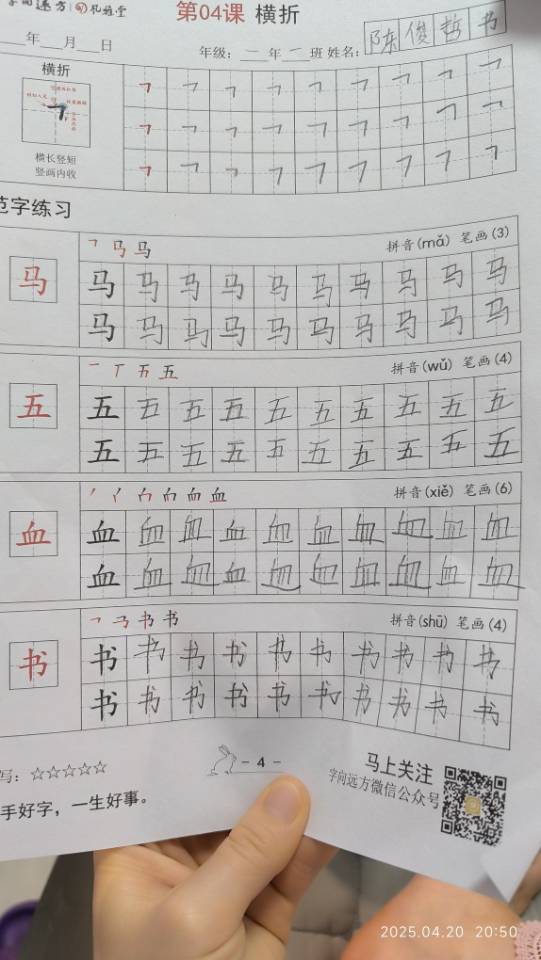 字向远方 孔雅堂
第04课 横折
年 月 日
年级：一 年 一 班 姓名：陈俊哲 书
横折
横长竖短
竖画内收
㇕ ㇕ ㇕ ㇕ ㇕ ㇕ ㇕ ㇕ ㇕
㇕ ㇕ ㇕ ㇕ ㇕ ㇕ ㇕ ㇕ ㇕
㇕ ㇕ ㇕ ㇕ ㇕ ㇕ ㇕ ㇕ ㇕
范字练习
马
拼音(mǎ) 笔画(3)
马 马 马 马 马 马 马 马 马 马
马 马 马 马 马 马 马 马 马 马
五
拼音(wǔ) 笔画(4)
五 五 五 五 五 五 五 五 五 五
五 五 五 五 五 五 五 五 五 五
血
拼音(xiě) 笔画(6)
血 血 血 血 血 血 血 血 血 血
血 血 血 血 血 血 血 血 血 血
书
拼音(shū) 笔画(4)
书 书 书 书 书 书 书 书 书 书
书 书 书 书 书 书 书 书 书 书
写：☆☆☆☆☆
手好字，一生好事。
- 4 -
马上关注
字向远方微信公众号
2025.04.20 20:50